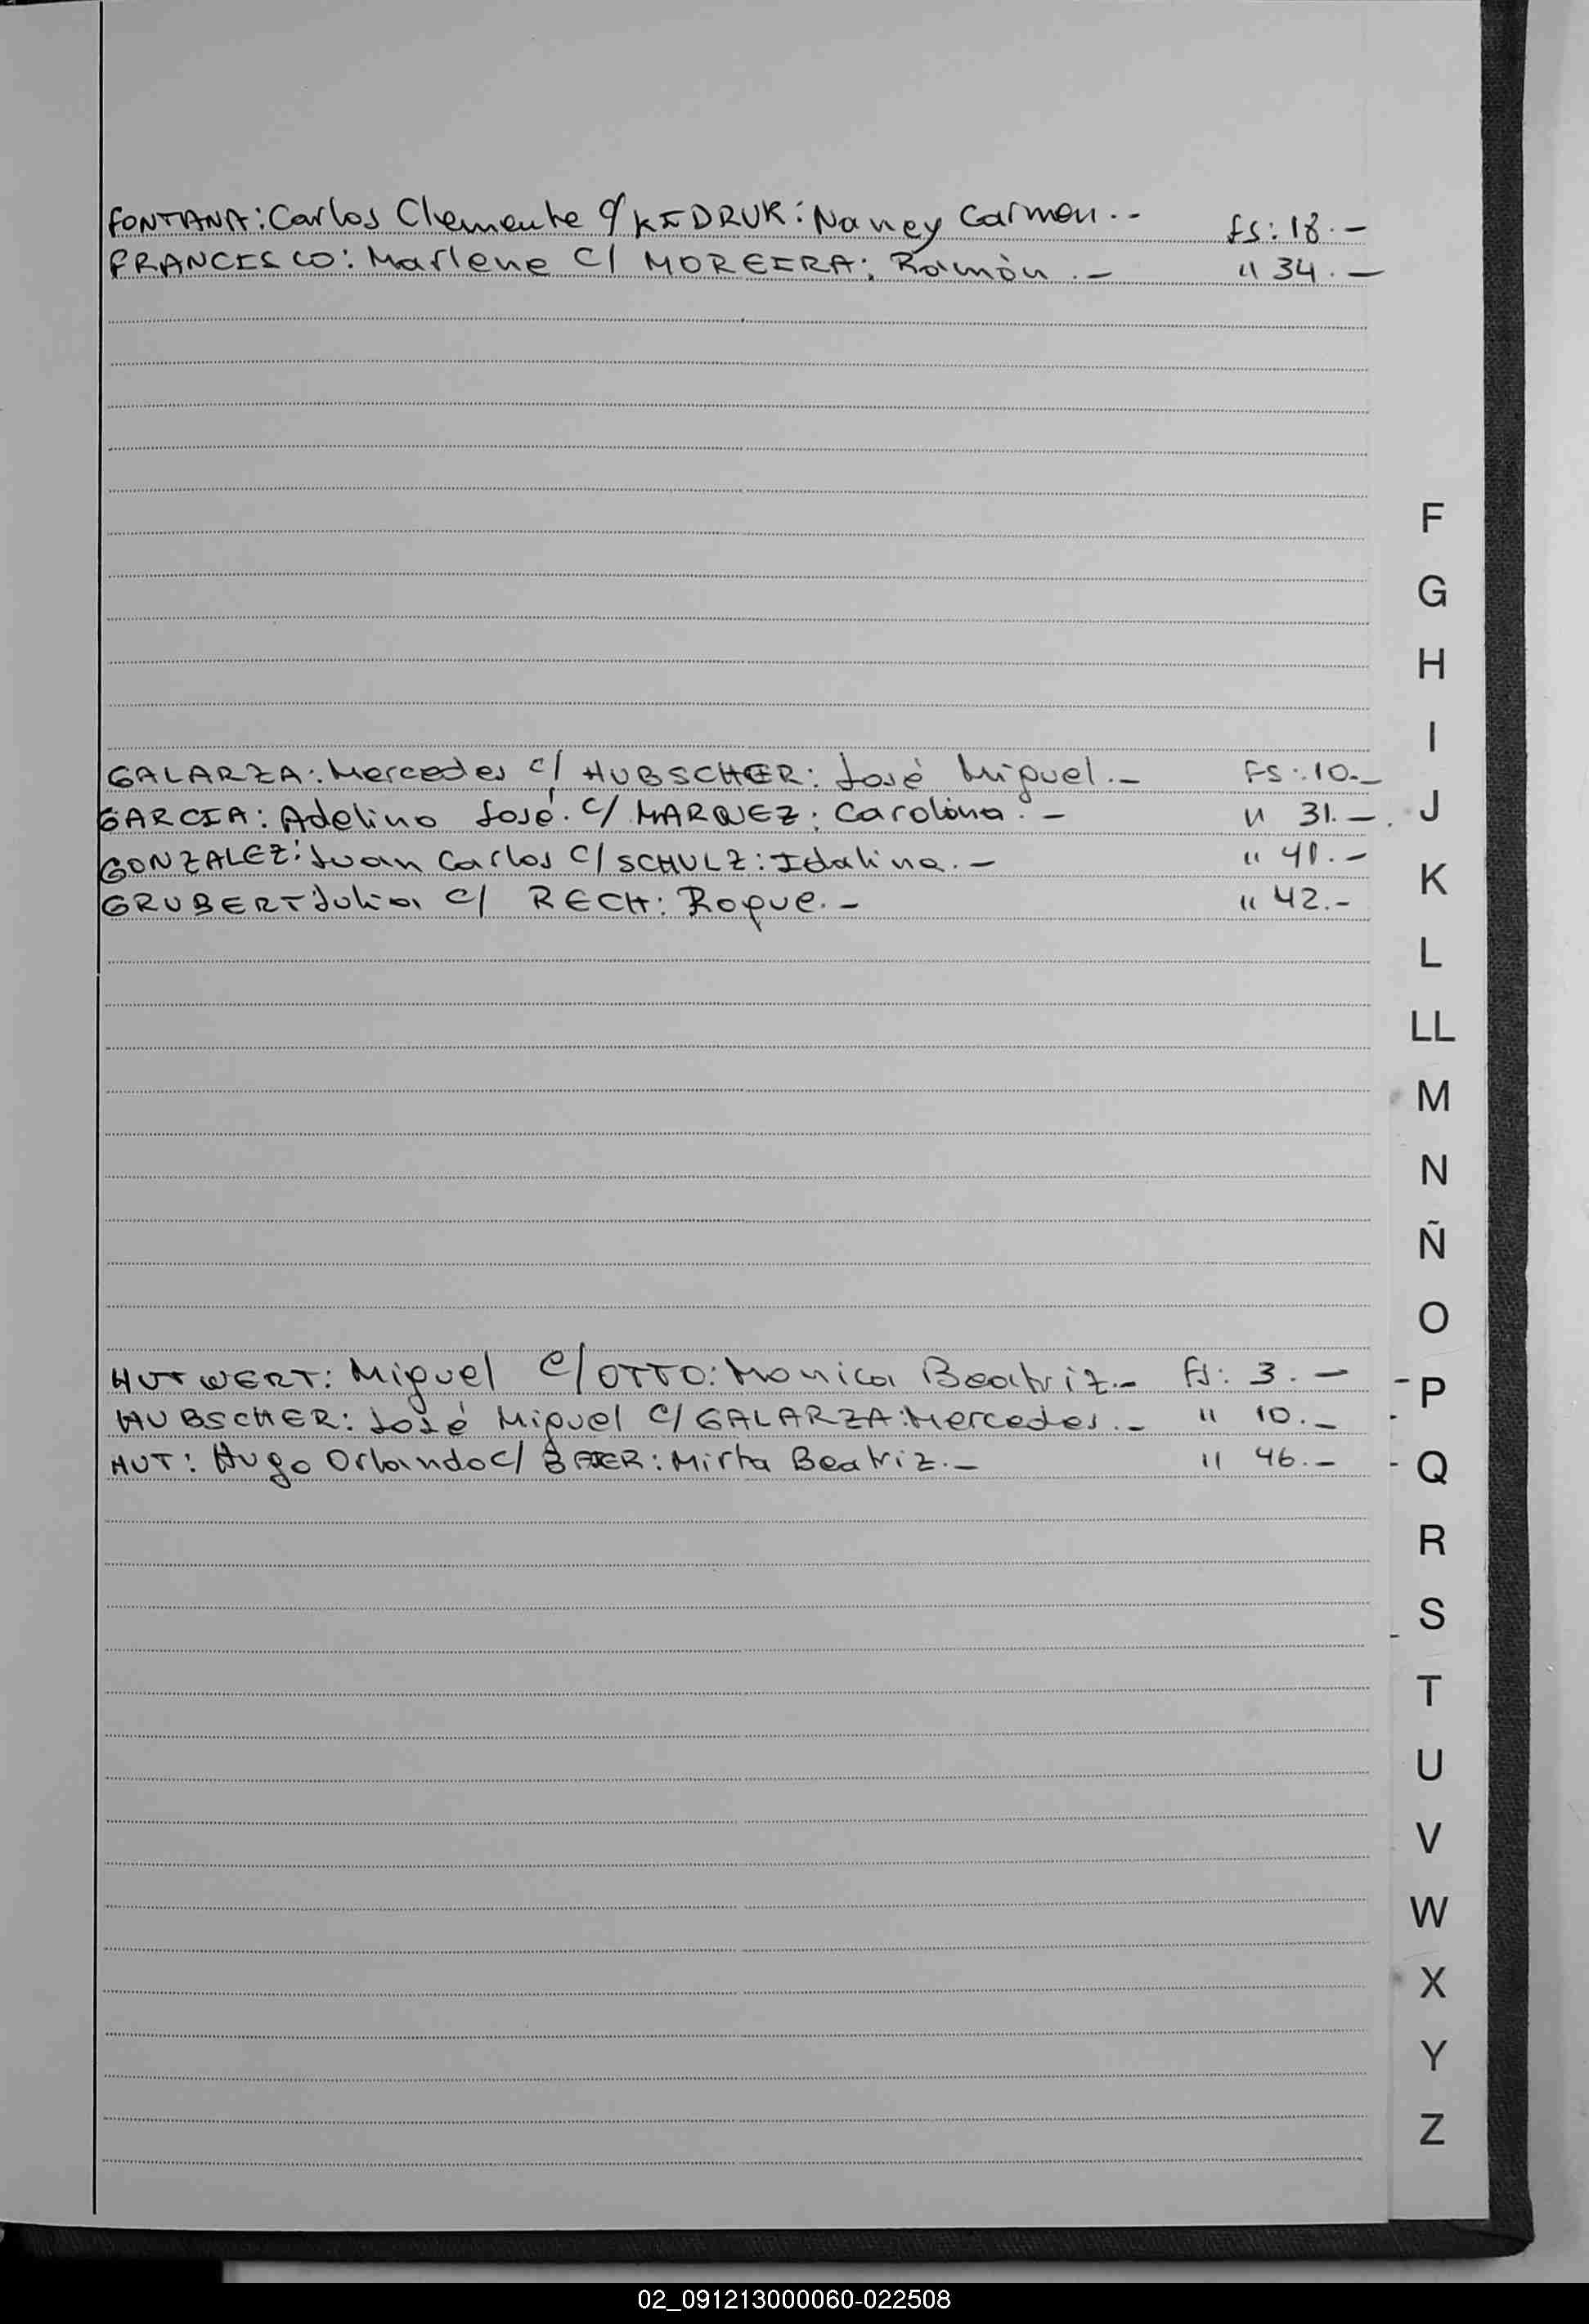 FONTANA: Carlos Clemente c/ KIDRUK: Nancy Carmen.- fs: 18.-
FRANCISCO: Marlene C/ MOREIRA: Ramón.- " 34.-
F
G
H
I
GALARZA: Mercedes c/ HUBSCHER: José Miguel.- FS: 10.-
GARCIA: Adelino José. C/ MARQUEZ: Carolina.- " 31.-
J
GONZALEZ: Juan Carlos C/ SCHULZ: Idalina.- " 41.-
K
GRUBERT Julia C/ RECH: Roque.- " 42.-
L
LL
M
N
Ñ
O
HUTWERT: Miguel C/ OTTO: Monica Beatriz.- fs: 3.-
P
HUBSCHER: José Miguel C/ GALARZA: Mercedes.- " 10.-
HUT: Hugo Orlando C/ : Mirta Beatriz.- " 46.-
Q
R
S
T
U
V
W
X
Y
Z
02_091213000060-022508